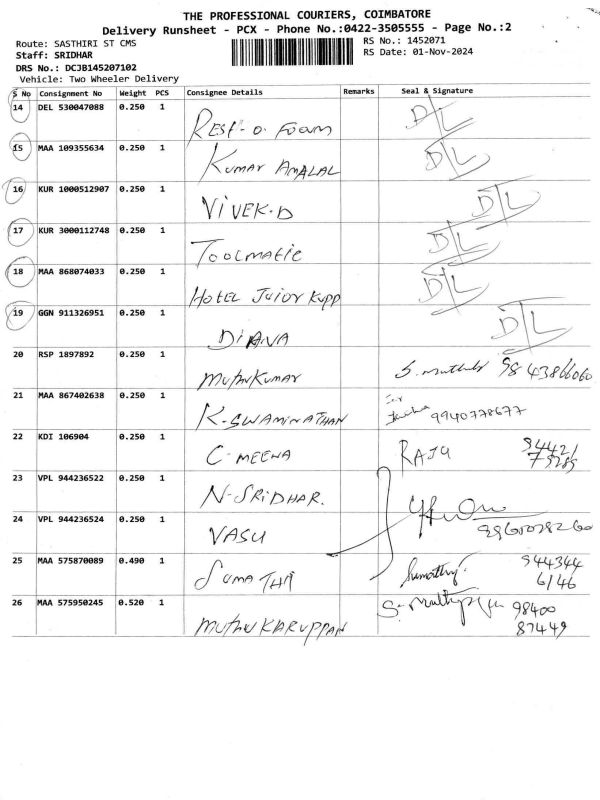 THE PROFESSIONAL COURIERS, COIMBATORE
Delivery Runsheet - PCX - Phone No.:0422-3505555 - Page No.:2
Route: SASTHIRI ST CMS
RS No.: 1452071
Staff: SRIDHAR
RS Date: 01-Nov-2024
DRS No.: DCJB145207102
Vehicle: Two Wheeler Delivery
S No Consignment No Weight PCS Consignee Details Remarks Seal & Signature
14 DEL 530047088 0.250 1 REST-O-FOAM D/L
15 MAA 109355634 0.250 1 KUMAR AMALAL D/L
16 KUR 1000512907 0.250 1 VIVEK.D D/L
17 KUR 3000112748 0.250 1 TOOLMATIC D/L
18 MAA 868074033 0.250 1 HOTEL JUIOR KUPP D/L
19 GGN 911326951 0.250 1 DIANA D/L
20 RSP 1897892 0.250 1 MUTHUKUMAR S. 9843866060
21 MAA 867402638 0.250 1 K-SWAMINATHAN 9940778677
22 KDI 106904 0.250 1 C-MEENA RAJU 94421
75289
23 VPL 944236522 0.250 1 N-SRIDHAR.
24 VPL 944236524 0.250 1 VASU
25 MAA 575870089 0.490 1 SUMATHI Sumathy. 944344
6146
26 MAA 575950245 0.520 1 MUTHUKARUPPAN 98400
87449